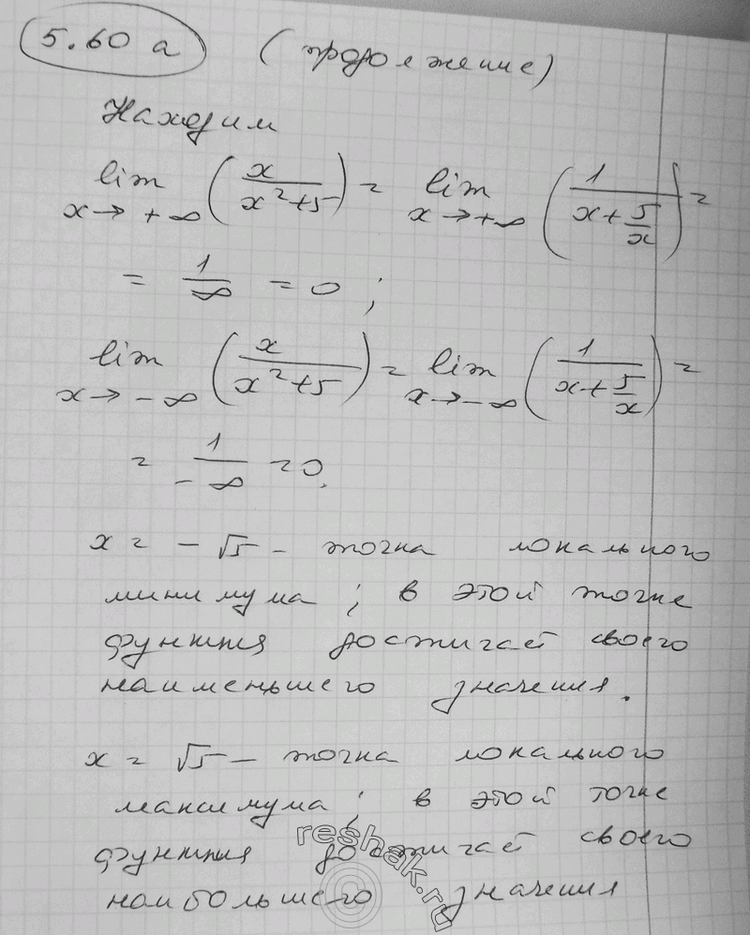 5.60 а (продолжение)
Находим
lim x→+∞ (x/(x²+5)) = lim x→+∞ (1/(x+5/x)) =
= 1/∞ = 0;
lim x→−∞ (x/(x²+5)) = lim x→−∞ (1/(x+5/x)) =
= 1/−∞ = 0.
x = −√5 − точка локального
минимума; в этой точке
функция достигает своего
наименьшего значения.
x = √5 − точка локального
максимума; в этой точке
функция достигает своего
наибольшего значения
reshak.ru